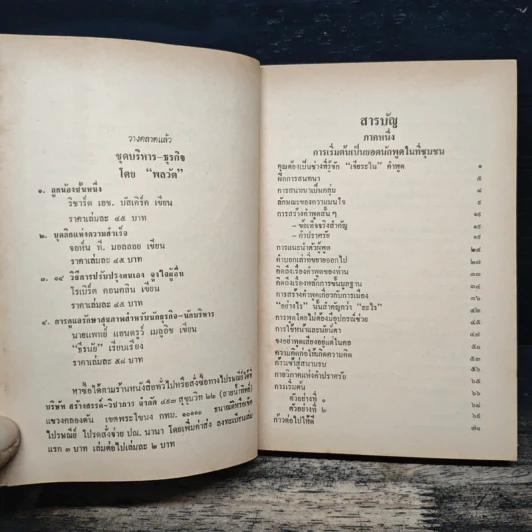 วางตลาดแล้ว
ชุดบริหาร-ธุรกิจ
โดย "พลวัต"
๑. ลูกน้องชั้นหนึ่ง
ริชาร์ด เอช. บัสเคิร์ค เขียน
ราคาเล่มละ ๔๕ บาท
๒. จุดติดแห่งความสำเร็จ
จอห์น ที. มอลลอย เขียน
ราคาเล่มละ ๔๕ บาท
๓. ๑๙ วิธีการปรับปรุงตนเอง จูงใจผู้อื่น
โรเบิร์ต คอนคลิน เขียน
ราคาเล่มละ ๔๕ บาท
๔. การดูแลรักษาสุขภาพสำหรับนักธุรกิจ-นักบริหาร
นายแพทย์ แอนดรูว์ เมลูอิช เขียน
"ธีรนัย" เรียบเรียง
ราคาเล่มละ ๕๘ บาท
หาซื้อได้ตามร้านหนังสือทั่วไปหรือสั่งซื้อทางไปรษณีย์ได้ที่
บริษัท สร้างสรรค์-วิชาการ จำกัด ๔๕๓ สุขุมวิท ๒๒ (สายน้ำทิพย์)
แขวงคลองตัน เขตพระโขนง กทม. ๑๐๑๑๐ ธนาณัติหรือเช็ค
ไปรษณีย์ โปรดสั่งจ่าย ปณ. นานา โดยเพิ่มค่าส่ง ลงทะเบียนเล่ม
แรก ๓ บาท เล่มต่อไปเล่มละ ๒ บาท
สารบัญ
ภาคหนึ่ง
การเริ่มต้นเป็นยอดนักพูดในที่ชุมชน
คุณต้องเป็นช่างที่รู้จัก "เจียระไน" คำพูด ๑
ฝึกการสนทนา ๕
การสนทนาเป็นกลุ่ม
ลักษณะของความมั่นใจ
การสร้างคำพูดสั้น ๆ
—ข้อเท็จจริงสำคัญ
—คำปราศรัย
การแนะนำตัวผู้พูด ๒๔
คำบอกเล่าที่ขยายออกไป
คิดถึงเรื่องคำพูดของท่าน
คิดถึงเรื่องหลักการขั้นมูลฐาน
การสร้างคำพูดเกี่ยวกับการเมือง ๓๖
"อย่างไร" นั้นสำคัญกว่า "อะไร"
การพูดโดยไม่ต้องมีอุปกรณ์ช่วย
การใช้หน้าและนัยน์ตา
จงอย่าพูดเสียงอยู่แต่ในคอ
ความคิดก่อให้เกิดความคิด ๕๓
ก้าวเข้าสู่สนามรบ
กายวิภาคแห่งคำปราศรัย
การเริ่มต้น ๖๕
ตัวอย่างที่ ๑
ตัวอย่างที่ ๒ ๖๘
ก้าวต่อไปให้ดี